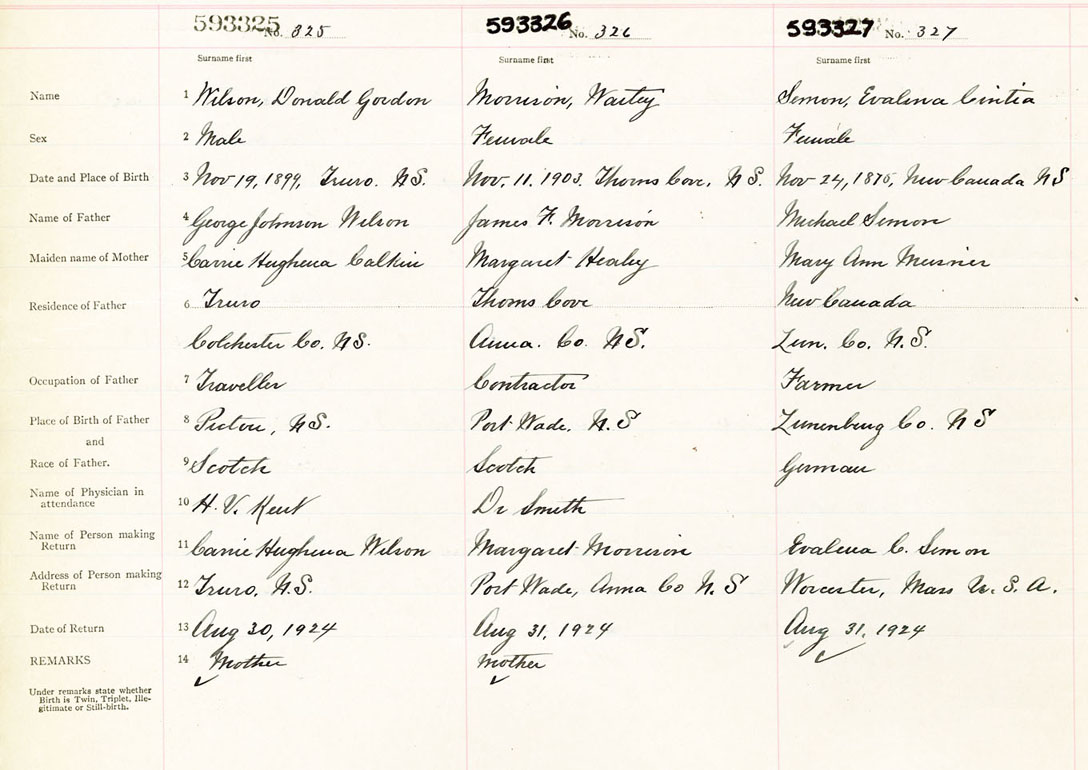 593325 No. 325 593326 No. 326 593327 No. 327
Surname first Surname first Surname first
Name 1 Wilson, Donald Gordon Morrison, Waitey Semon, Evalena Cintia
Sex 2 Male Female Female
Date and Place of Birth 3 Nov 19, 1899, Truro. N.S. Nov. 11. 1903. Thorns Cove. N S. Nov 24, 1876, New Canada N S
Name of Father 4 George Johnson Wilson James F. Morrison Michael Semon
Maiden name of Mother 5 Carrie Hughena Calkin Margaret Healey Mary Ann Meisner
Residence of Father 6 Truro Thorns Cove New Canada
Colchester Co. N S. Anna. Co. N S. Lun. Co. N. S.
Occupation of Father 7 Traveller Contractor Farmer
Place of Birth of Father 8 Pictou, N S. Port Wade. N. S Lunenburg Co. N S
and
Race of Father. 9 Scotch Scotch German
Name of Physician in
attendance 10 H. V. Kent Dr Smith
Name of Person making
Return 11 Carrie Hughena Wilson Margaret Morrison Evalena C. Semon
Address of Person making
Return 12 Truro, N.S. Port Wade, Anna Co N. S Worcester, Mass U. S. A.
Date of Return 13 Aug 30, 1924 Aug 31, 1924 Aug 31, 1924
REMARKS 14 Mother Mother
Under remarks state whether
Birth is Twin, Triplet, Ille-
gitimate or Still-birth.